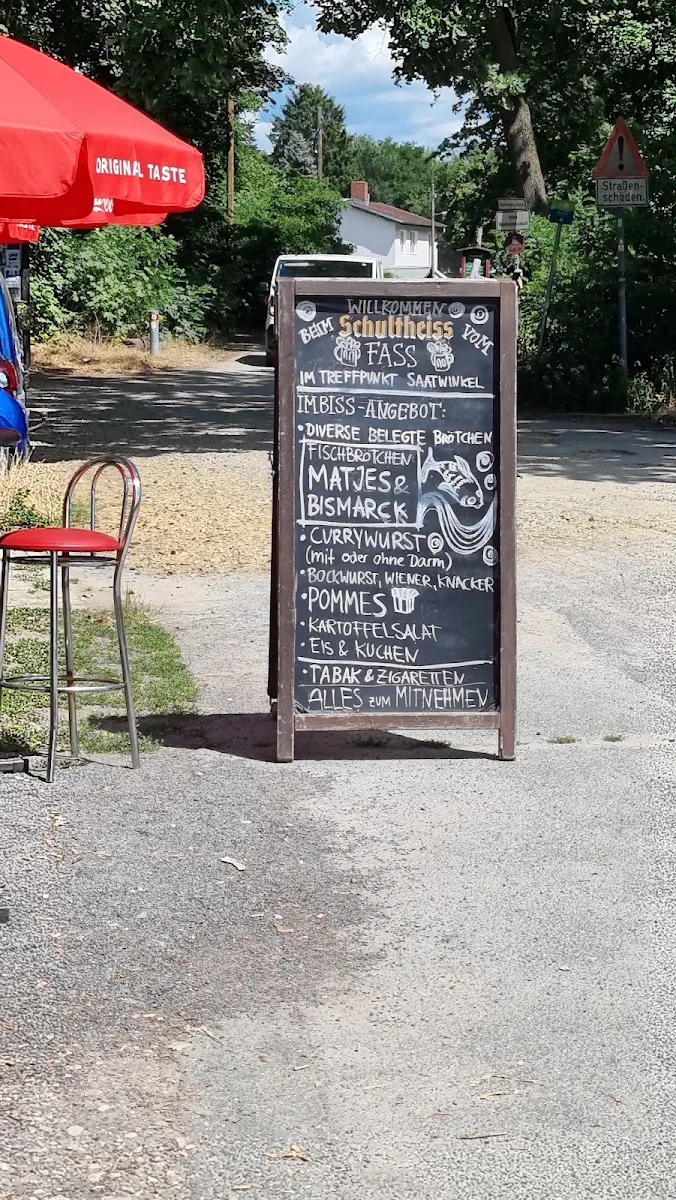 ORIGINAL TASTE
Straßen-
schäden
WILLKOMMEN
BEIM Schultheiss VOM
FASS
IM TREFFPUNKT SAATWINKEL
IMBISS-ANGEBOT:
• DIVERSE BELEGTE BRÖTCHEN
FISCHBRÖTCHEN:
MATJES &
BISMARCK
• CURRYWURST
(mit oder ohne Darm)
• BOCKWURST, WIENER, KNACKER
• POMMES
• KARTOFFELSALAT
• EIS & KUCHEN
• TABAK & ZIGARETTEN
ALLES ZUM MITNEHMEN